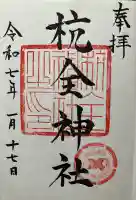 奉拝
杭全神社
令和七年一月十七日